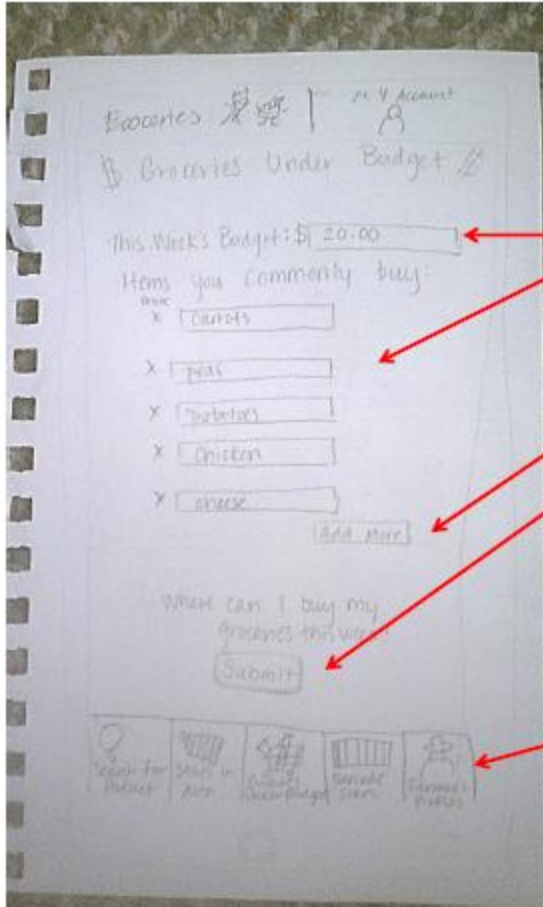 Ecoceries
My Account
$ Groceries Under Budget $
This Week's Budget: $ 20.00
Items you commonly buy:
x carrots
x
x potatoes
x chicken
x cheese
Add More
Where can I buy my
groceries this week?
Submit
Search for
Product
Stores in
Area
Under Budget
Barcode
Scan
Farmer's